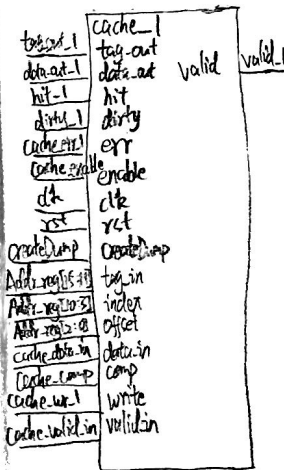 cache_1
tag_out_1 tag_out
data_out_1 data_out valid valid_1
hit_1 hit
dirty_1 dirty
cache_err_1 err
cache_enable enable
clk clk
rst rst
createDump createDump
Addr_reg[15:11] tag_in
Addr_reg[10:3] index
Addr_reg[2:0] offset
cache_data_in data_in
cache_comp comp
cache_wr_1 write
cache_valid_in valid_in